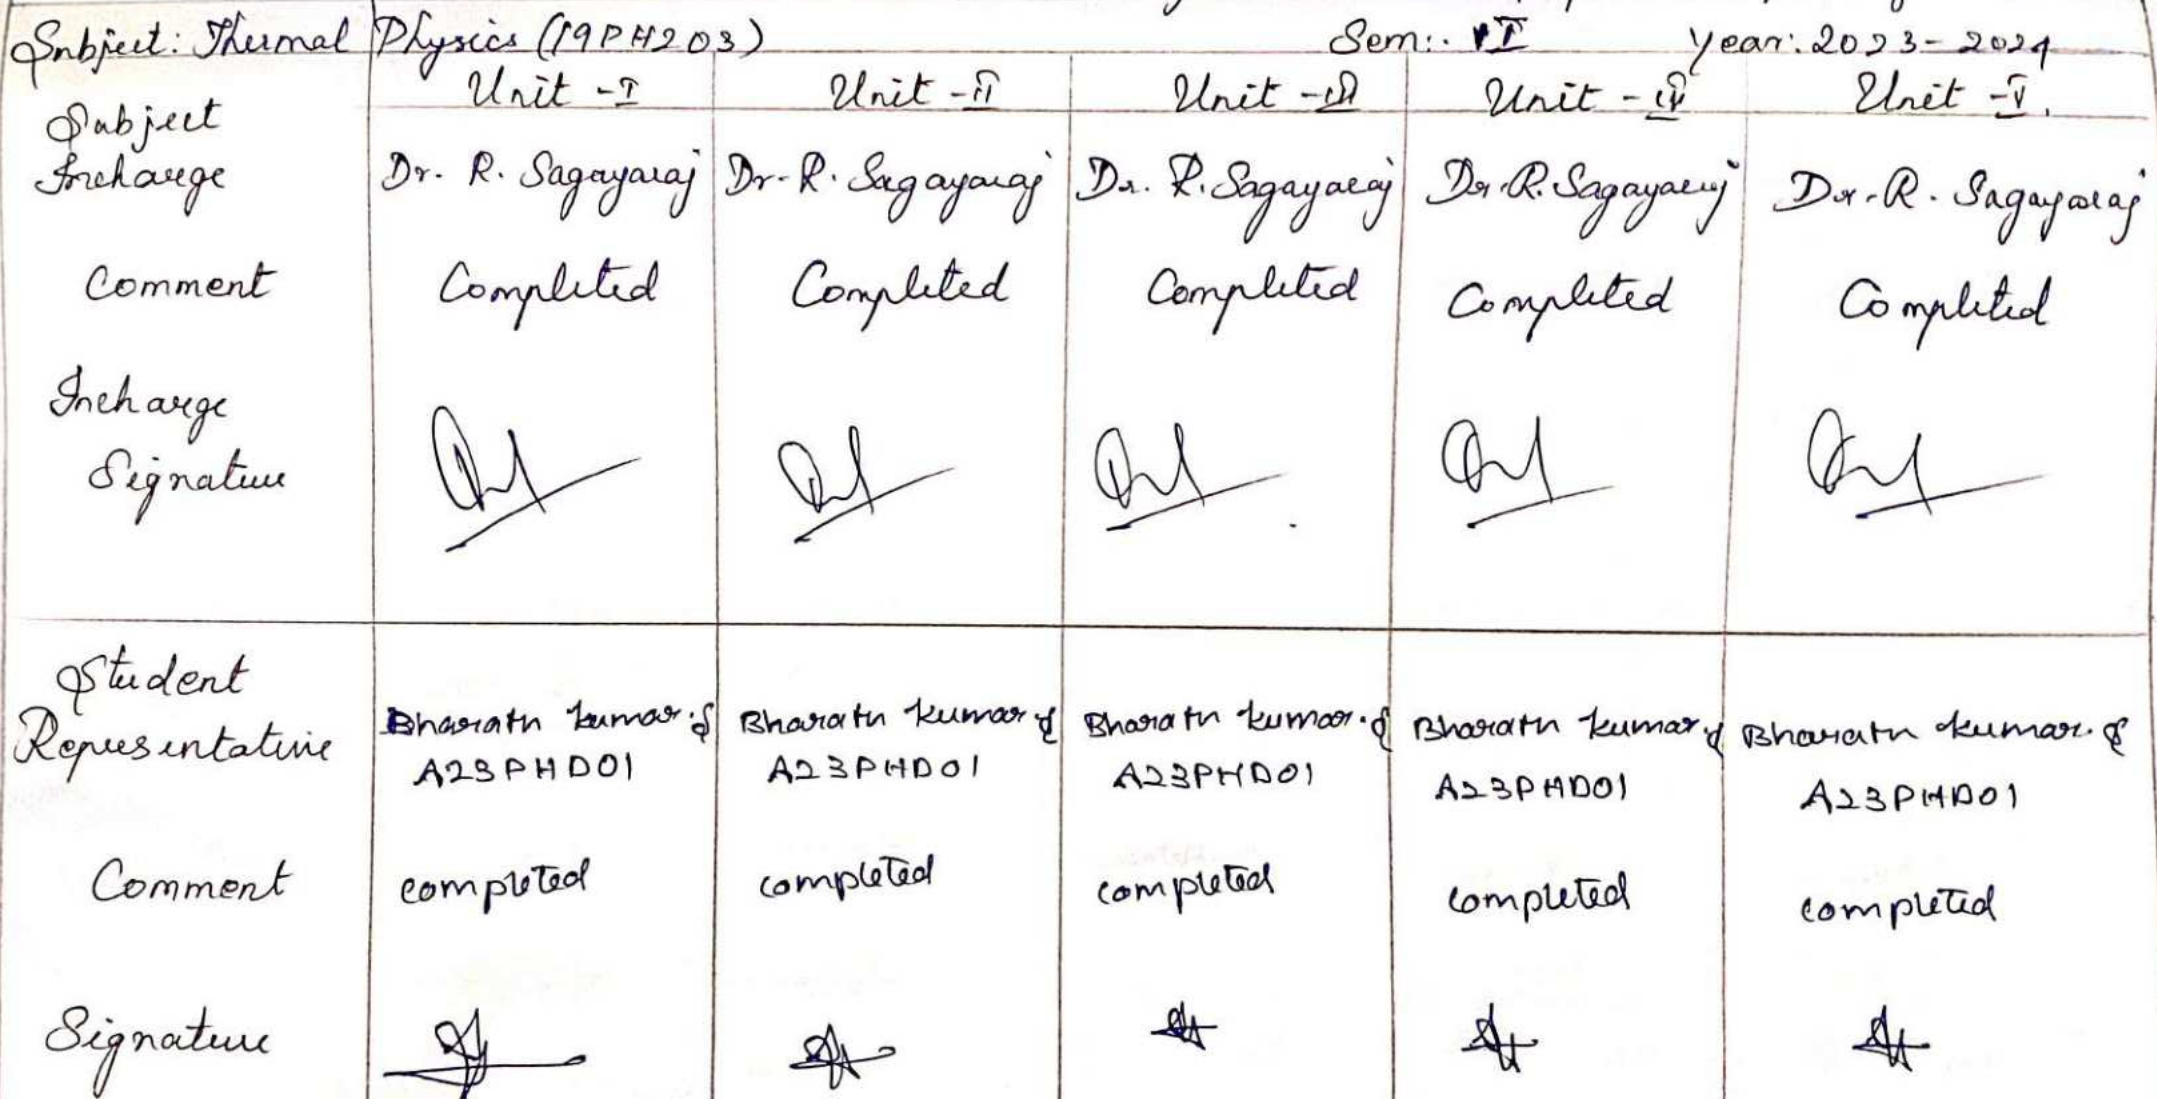 Subject: Thermal Physics (19PH203) Sem: II Year: 2023-2024
Unit - I Unit - II Unit - III Unit - IV Unit - V.
Subject
Incharge Dr. R. Sagayaraj Dr. R. Sagayaraj Dr. R. Sagayaraj Dr. R. Sagayaraj Dr. R. Sagayaraj
Comment Completed Completed Completed Completed Completed
Incharge
Signature
Student
Representative Bharath kumar.S Bharath kumar.S Bharath kumar.S Bharath kumar.S Bharath kumar.S
A23PHD01 A23PHD01 A23PHD01 A23PHD01 A23PHD01
Comment completed completed completed completed completed
Signature